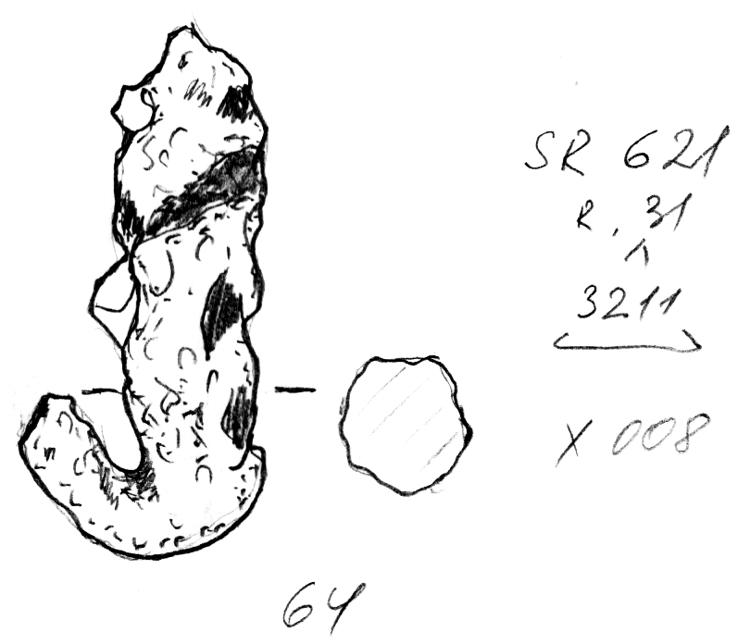 SR 621
R. 31
1
3211
X 008
64